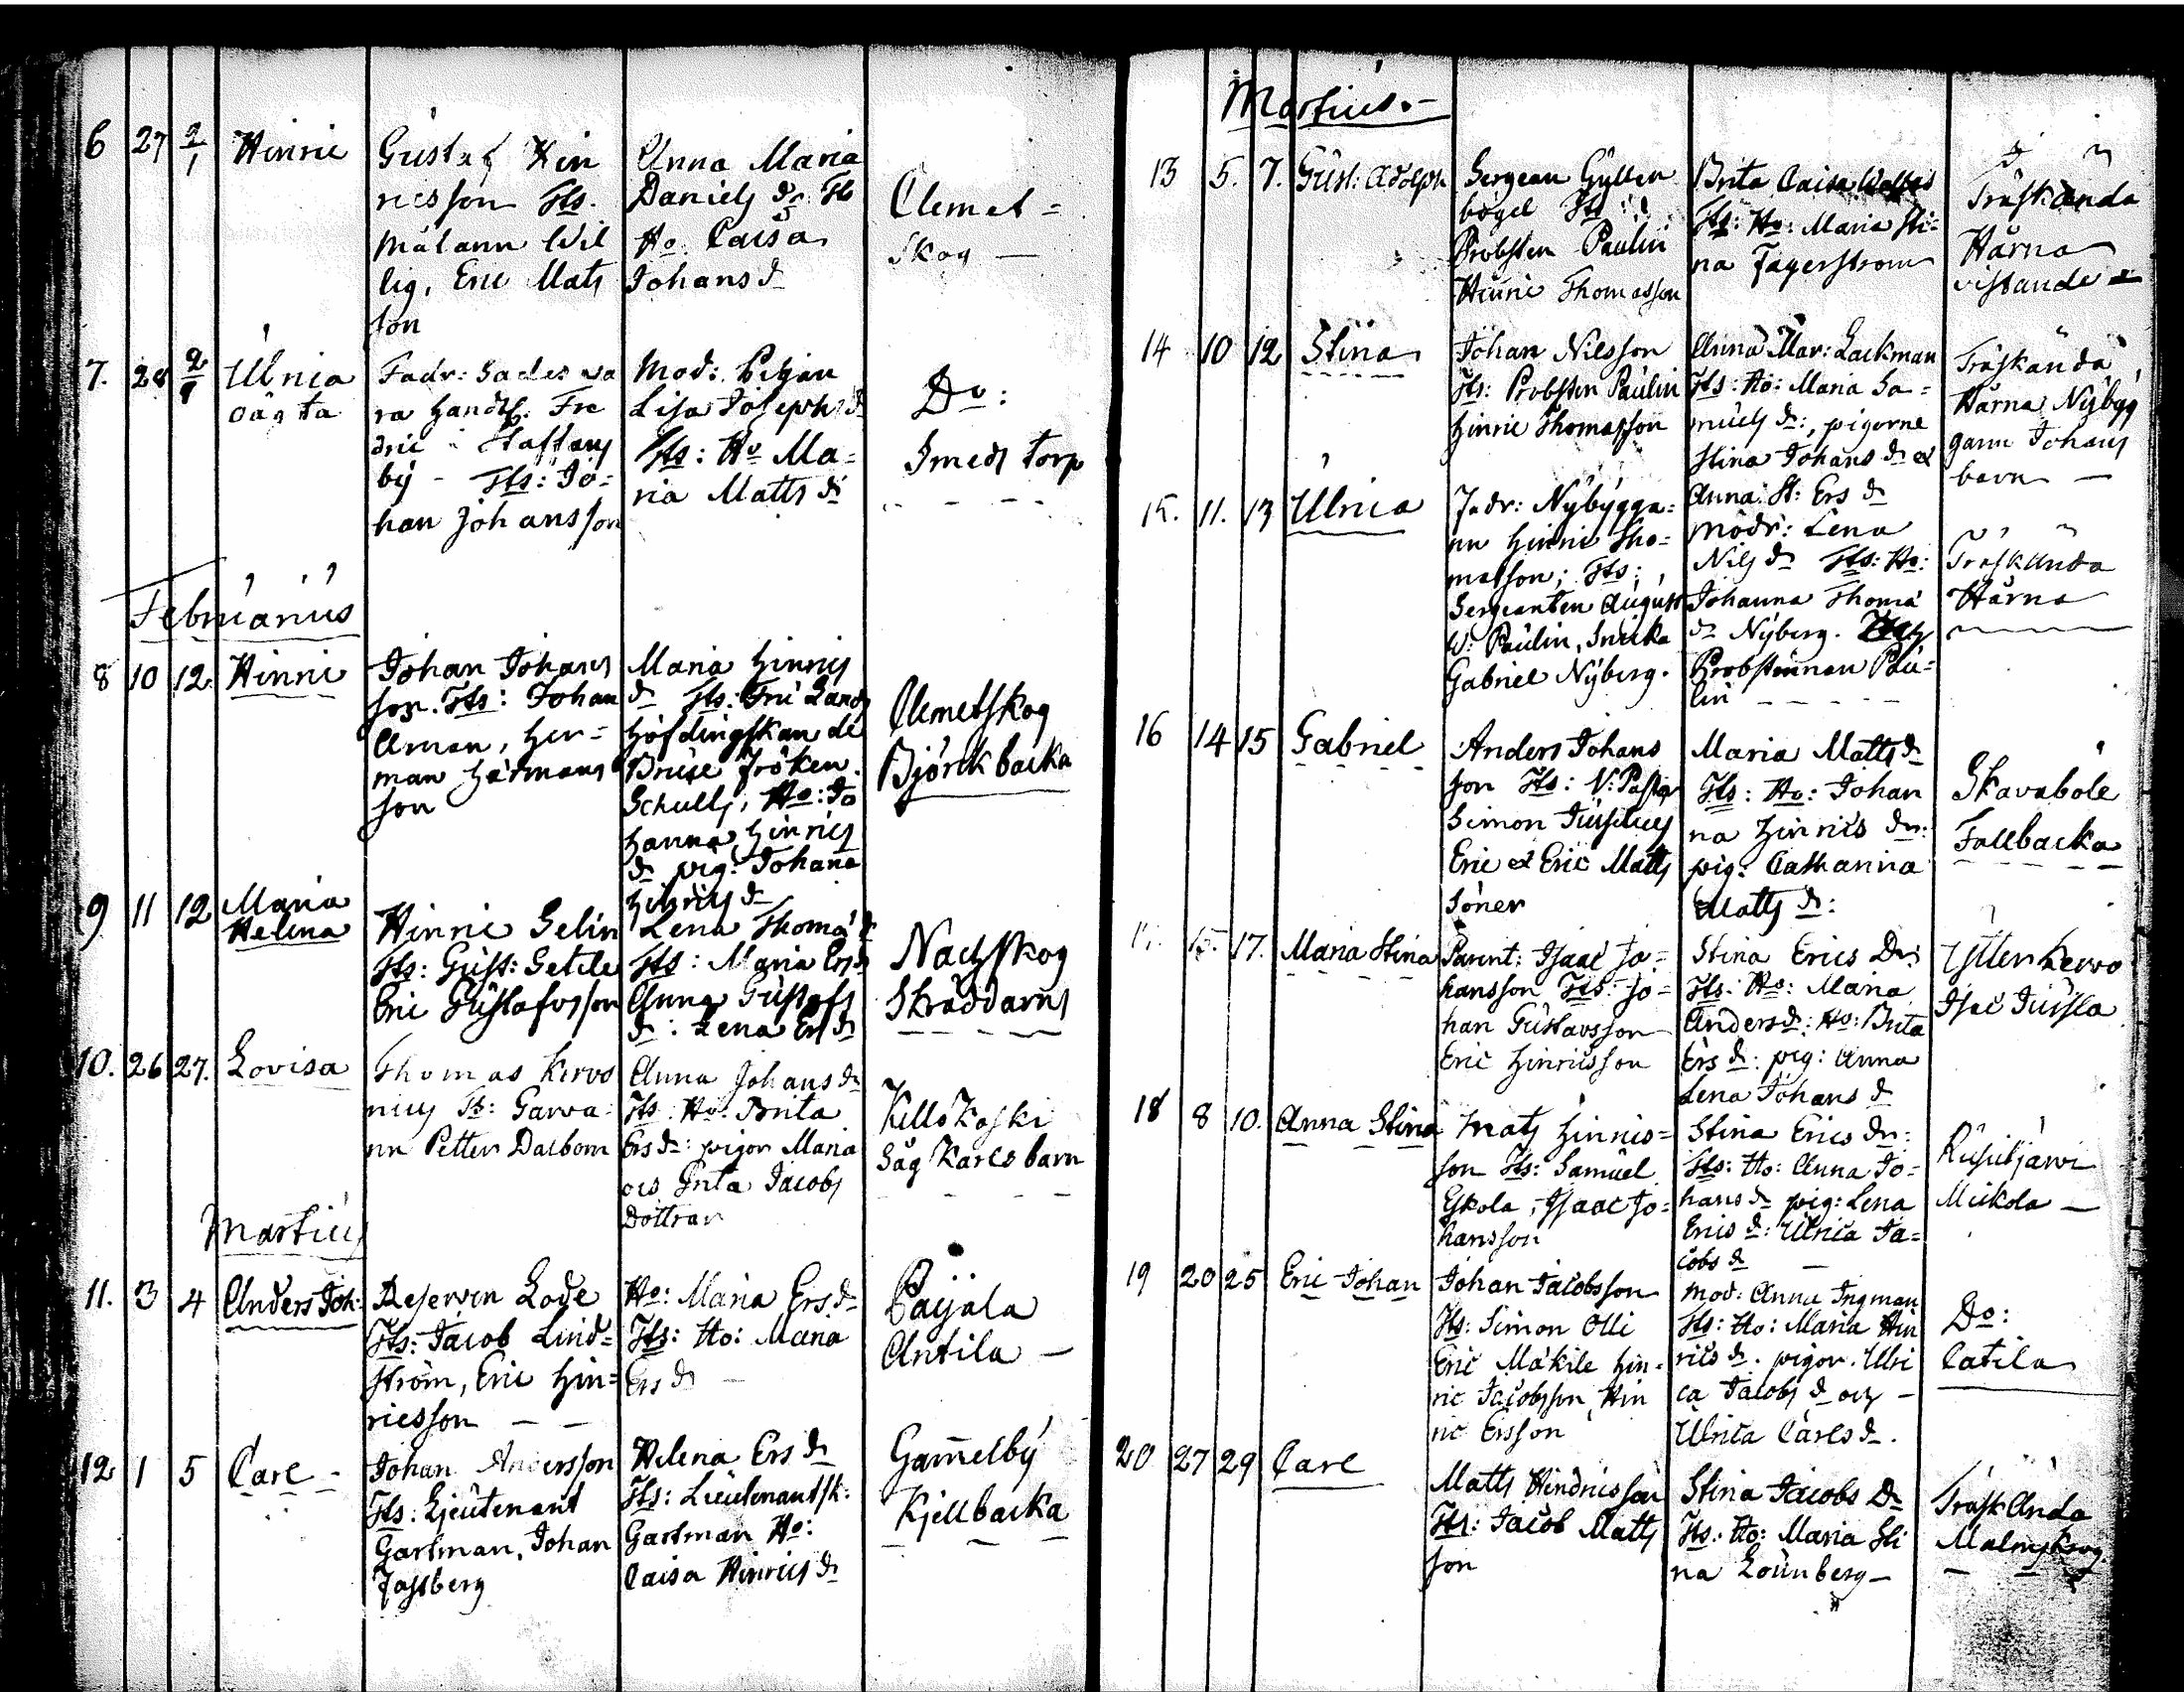 6 27 2/1 Hinric
Gustaf Hin
ricsson Tts.
målarn Wil
lig, Eric Mats
son
Anna Maria
Daniels dr. Tts
Ho Caisa
Johans dr
Clemet=
skog —
7. 28 2/1 Ulrica
oägta
Fadr: Sades va
ra handtl. Fre
dric Staffans
by - Tts: Jo=
han Johansson
Mod: Pigan
Lisa Josephs dr
Tts: Ho Ma=
ria Matts dr
Do:
Smeds torp
Februarius
8 10 12. Hinric
Johan Johans
son. Tts: Johan
Aman, Her=
man Hermans
son
Maria Hinrics
dr Tts: Fru Lands
höfdingskan de
Bruse fröken
Schults, Ho: Jo
hanna Hinrics
dr pig: Johana
Hinrics dr
Clemetskog
Björckbacka
9 11 12 Maria
Helena
Hinric Selin
Tts: Gust: Setele
Eric Gustafsson
Lena Thomæ dr
Tts: Maria Ers dr
Anna Gustafs
dr: Lena Ers dr
Nackskog
Skräddarns
10. 26 27. Lovisa
Thomas Kervo
nius Tts: Garva=
rn Petter Dalbom
Anna Johans dr
Tts: Ho: Brita
Ers dr: pigor Maria
ocs Brita Jacobs
döttrar
Kellokoski
Såg Karls barn
Martius
11. 3 4 Anders Joh:
Reserven Lode
Tts: Jacob Lind=
ström, Eric Hin=
ricsson — —
Ho: Maria Ers dr
Tts: Ho: Maria
Ers dr —
Paijala
Antila —
12 1 5 Carl -
Johan Andersson
Tts: Lieutenant
Gartman, Johan
Fastberg
Helena Ers dr
Tts: Lieutenantsk:
Gartman Ho:
Caisa Hinrics dr
Gamelby
Kjellbacka
Martius. —
13 5. 7. Gust: Adolph
Sergean Gyllen
bögel Tts:
Probsten Paulin
Hinric Thomasson
Brita Caisa
Tts: Ho: Maria Sti=
na Fagerström
Träskända
Härna
vistande
14 10 12 Stina
Johan Nilsson
Tts: Probsten Paulin
Hinric Thomasson
Anna Mar: Lackman
Tts: Ho: Maria Sa=
muels dr:, pigorne
Stina Johans dr et
Anna: St: Ers dr
Träskända,
Härna Nybyg
garn Johans
barn —
15. 11. 13 Ulrica
Fadr: Nybygga=
rn Hinric Tho=
masson; Tts:
Sergeanten August
W: Paulin, Snicka
Gabriel Nyberg.
Modr: Lena
Nils dr Tts: Ho:
Johanna Thomæ
dr Nyberg.
Probstinnan Pau=
lin - - - - -
Träskända
Härna
16 14 15 Gabriel
Anders Johans
son Tts: V: Pastor
Simon Juselius
Eric et Eric Matts
söner
Maria Matts dr
Tts: Ho: Johan
na Hinrics dr:
pig: Catharina
Matts dr:
Skavaböle
Fallbacka
17. 15. 17. Maria Stina
Parent: Isaac Jo=
hansson Tts: Jo=
han Gustavsson
Eric Hinricsson
Stina Erics Dr:
Tts: Ho: Maria
Anders dr: Ho: Brita
Ers dr: pig: Anna
Lena Johans dr
Ytterkervo
Isac Jussla
18 8 10. Anna Stina
Mats Hinrics=
son Tts: Samuel
Eskola, Isaac Jo=
hansson
Stina Erics dr:
Tts: Ho: Anna Jo=
hans dr pig: Lena
Erics dr: Ulrica Ja=
cobs dr —
Rusutjärvi
Mickola —
19 20 25 Eric Johan
Johan Jacobsson
Tts: Simon Olli
Eric Mäkilä Hin=
ric Jacobsson Hin
ric Ersson
Mod: Anna Ingman
Tts: Ho: Maria Hin
rics dr. pigor. Ulri
ca Jacobs dr och —
Ulrica Carls dr.
Do:
Catila
20 27 29 Carl
Matts Hindricsson
Tts: Jacob Matts
son
Stina Jacobs Dr
Tts: Ho: Maria Sti
na Lönnberg —
Träskända
Malmskog